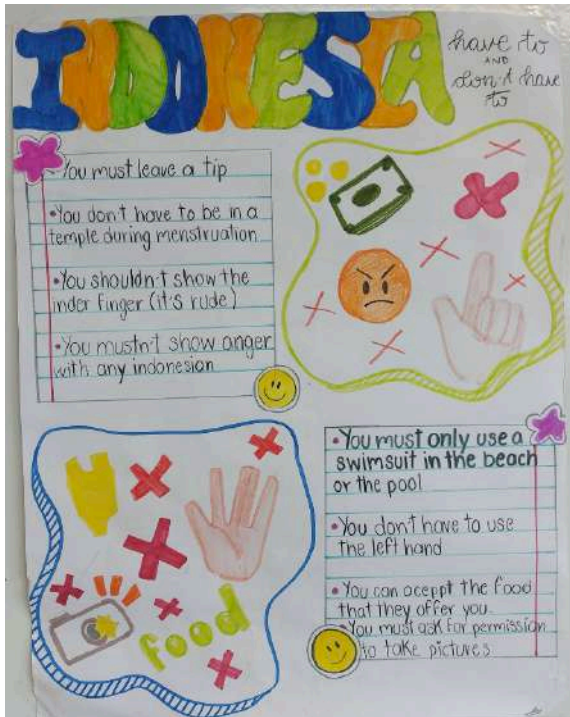 INDONESIA
have to
AND
don't have
to
You must leave a tip
•You don't have to be in a
temple during menstruation
•You shouldn't show the
inder finger (it's rude)
•You mustn't show anger
with any indonesian
•You must only use a
swimsuit in the beach
or the pool
•You don't have to use
the left hand
•You can aceppt the food
that they offer you.
•You must ask for permission
to take pictures
food